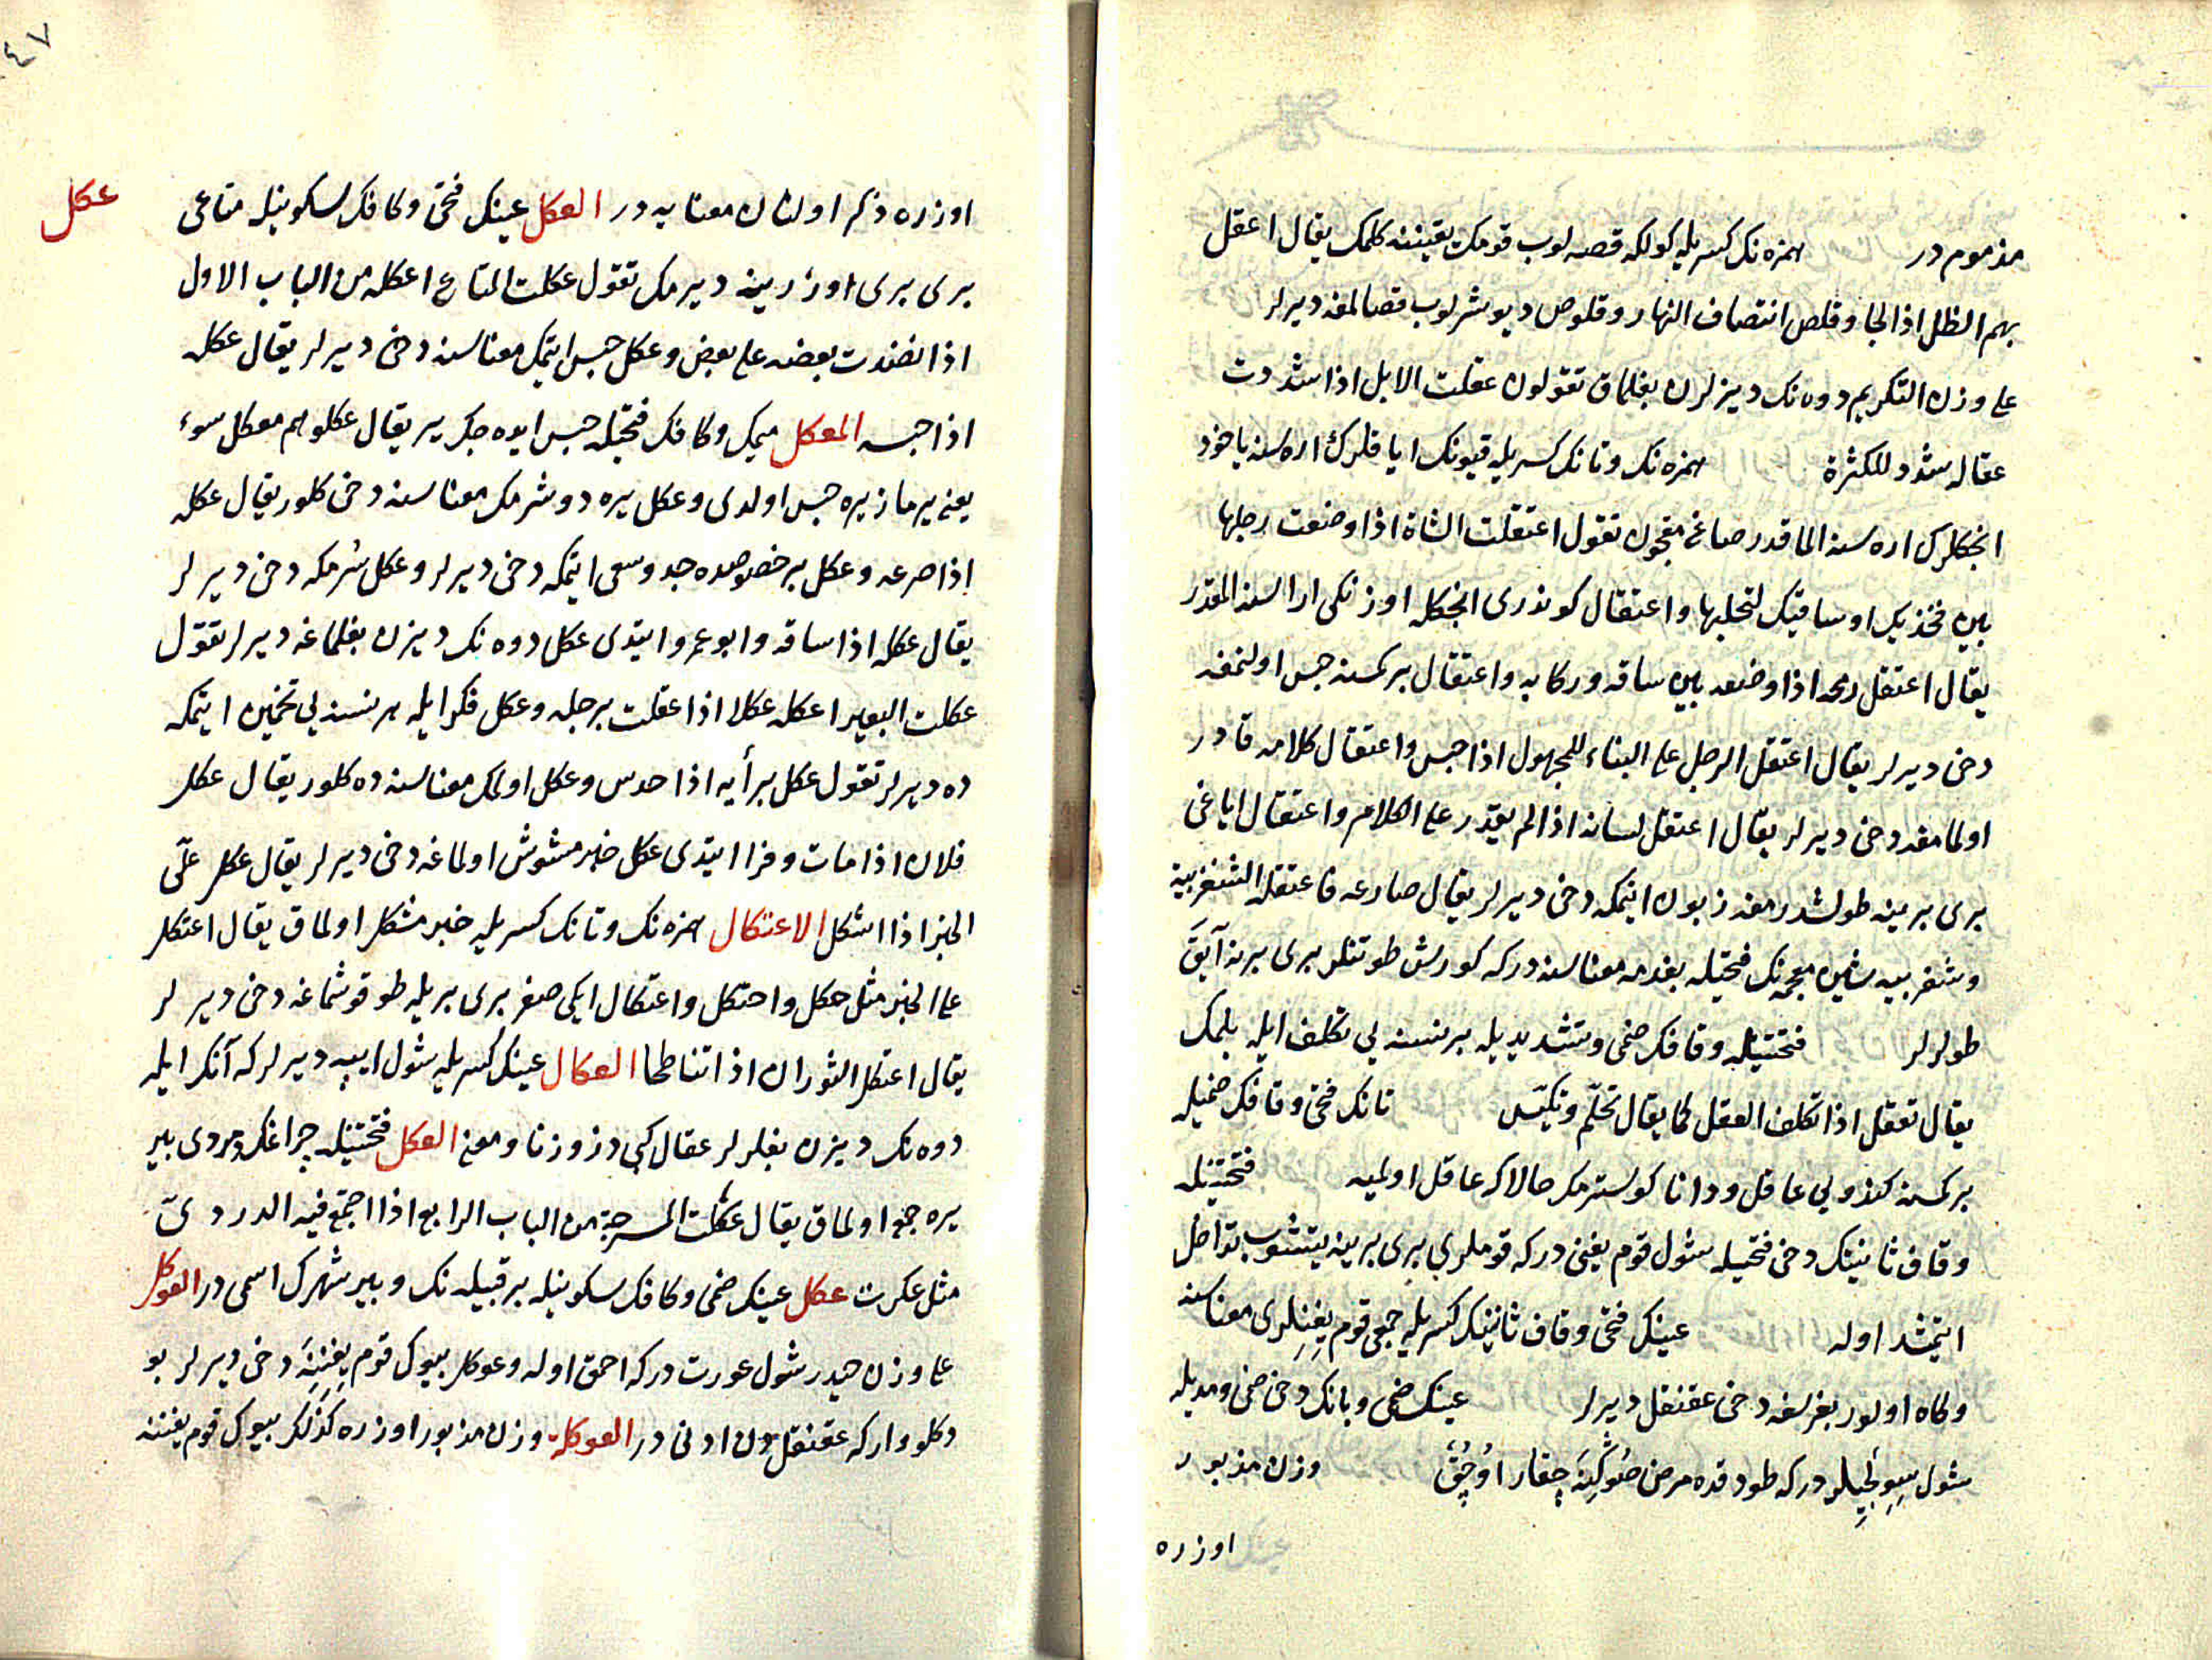 مذموم در همزه نك كسريله كولكه قصه لوب قومك يقيننه كلمك يقال اعقل
بهم الظل اذا لجا وقلص انتصاف النهار وقلوص ديو شرلوب قصالمغه ديرلر
على وزن التكريم دوه نك ديزلرن بغلماق تقولون عقلت الابل اذا شددت
عقاله شدد للكثرة همزه نك وتانك كسريله قيونك اياقلرك اره سنه ياخود
انجكلرك اره سنه الما قدر صاغمقچون تقول اعتقلت الشاة اذا وضعت رجلها
بين فخذيك او ساقيك لتحلبها واعتقال كوندرى انجكله اوزنكى اراسنه المقدر
يقال اعتقل رمحه اذا وضعه بين ساقه وركابه واعتقال بركسنه حبس اولنمغه
دخى ديرلر يقال اعتقل الرجل على البناء للمجهول اذا حبس واعتقال كلامه قادر
اولمامغه دخى ديرلر يقال اعتقل لسانه اذا لم يقدر على الكلام واعتقال اياغى
برى برينه طولشدرمغه زبون ايتمكه دخى ديرلر يقال صارعه فاعتقله الشغزبية
وشغزبيه شين معجمه نك فتحيله بغدمه معناسنه در كه كورش طوتنلر برى برنه آيق
طولرلر فتحتينله وقافك ضمى وتشديديله برنسنه يى تكلف ايله بلمك
يقال تعقل اذا تكلف العقل كما يقال تحلم وتكيس تانك فتحى وقافك ضميله
بركسنه كندويى عاقل ودانا كوسترمكدر حالا كه عاقل اولميه فتحتينله
وقاف ثانينك دخى فتحيله شول قوم يغنى در كه قوملرى برى برينه يتشوب تداخل
ايتمشد اوله عينك فتحى وقاف ثانينك كسريله جمعى قوم يغنلرى معناسنه
وكاه اولور بغرسغه دخى عقنقل ديرلر عينك ضمى وبانك دخى ضمى ومديله
شول سيولجيلر در كه طودقده مرض صوكنه چقار اوچق وزن مذبور
اوزره
٤٧
عكل
اوزره ذكر اولنان معنايه در العكل عينك فتحى وكافك سكونيله متاعى
برى برى اوزرينه ديرمك تقول عكلت المتاع اعكله من الباب الاول
اذا نضدت بعضه على بعض وعكل حبس ايتمك معناسنه دخى ديرلر يقال عكله
اذا حبسه المعكل ميمك وكافك فتحيله حبس ايده جك ير يقال عكلوهم معكل سوء
يعنى يرمازيره حبس اولدى وعكل يره دوشرمك معناسنه دخى كلور يقال عكله
اذا صرعه وعكل برخصوصده جد وسعى ايتمكه دخى ديرلر وعكل سرمكه دخى ديرلر
يقال عكله اذا ساقه وابو عمرو ايتدى عكل دوه نك ديزن بغلماغه ديرلر تقول
عكلت البعير اعكله عكلا اذا عقلت برجله وعكل فكر ايله هرنسنه يى تخمين ايتمكه
ده ديرلر تقول عكل برأيه اذا حدس وعكل اولمك معناسنه ده كلور يقال عكل
فلان اذا مات وفرا ايتدى عكل خبر مشوش اولماغه دخى ديرلر يقال عكل علىّ
الخبر اذا اشكل الاعتكال همزه نك وتانك كسريله خبر مشكل اولماق يقال اعتكل
على الخبر مثل حكل واحتكل واعتكال ايكى صغر برى بريله طوقوشماغه دخى ديرلر
يقال اعتكل الثوران اذا تناطحا العكال عينك كسريله شول ايپه ديرلر كه آنك ايله
دوه نك ديزن بغلرلر عقال كبى در وزنا ومعنى العكل فتحتينله چراغك دردى بير
يره جمع اولماق يقال عكلت المسرجة من الباب الرابع اذا اجتمع فيه الدردىّ
مثل عكرت عكل عينك ضمى وكافك سكونيله بر قبيله نك وبير شهرك اسمى در العوكل
على وزن حيدر شول عورت در كه احمق اوله وعوكل بيوك قوم يغننه دخى ديرلر بو
دكلو وار كه عقنقل دن ادنى در العوكلة وزن مذبور اوزره كذلك بيوك قوم يغننه